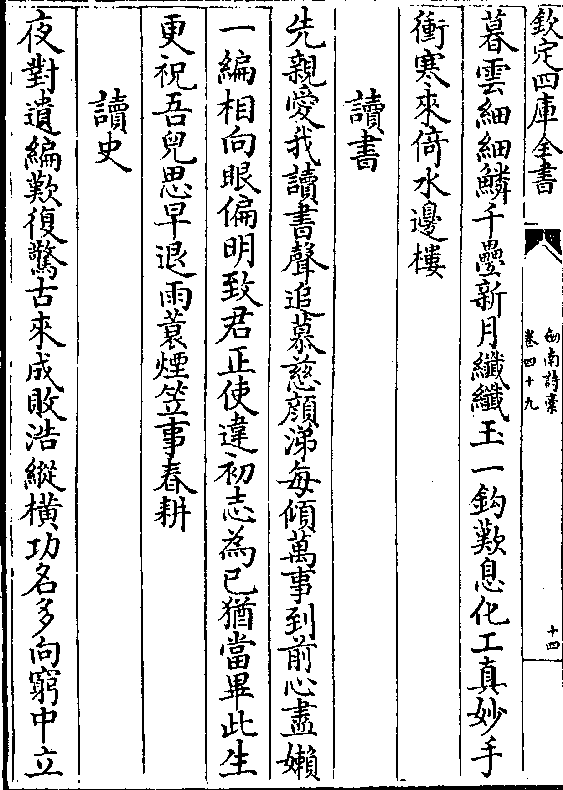 欽定四庫全書
劍南詩藁
卷四十九
十四
暮雲細細鱗千疊新月纖纖玉一鈎歎息化工真妙手
衝寒來倚水邊樓
讀書
先親愛我讀書聲追慕慈顔涕每傾萬事到前心盡嬾
一編相向眼偏明致君正使違初志為已猶當畢此生
更祝吾兒思早退雨蓑煙笠事春耕
讀史
夜對遺編歎復驚古來成敗浩縱橫功名多向窮中立